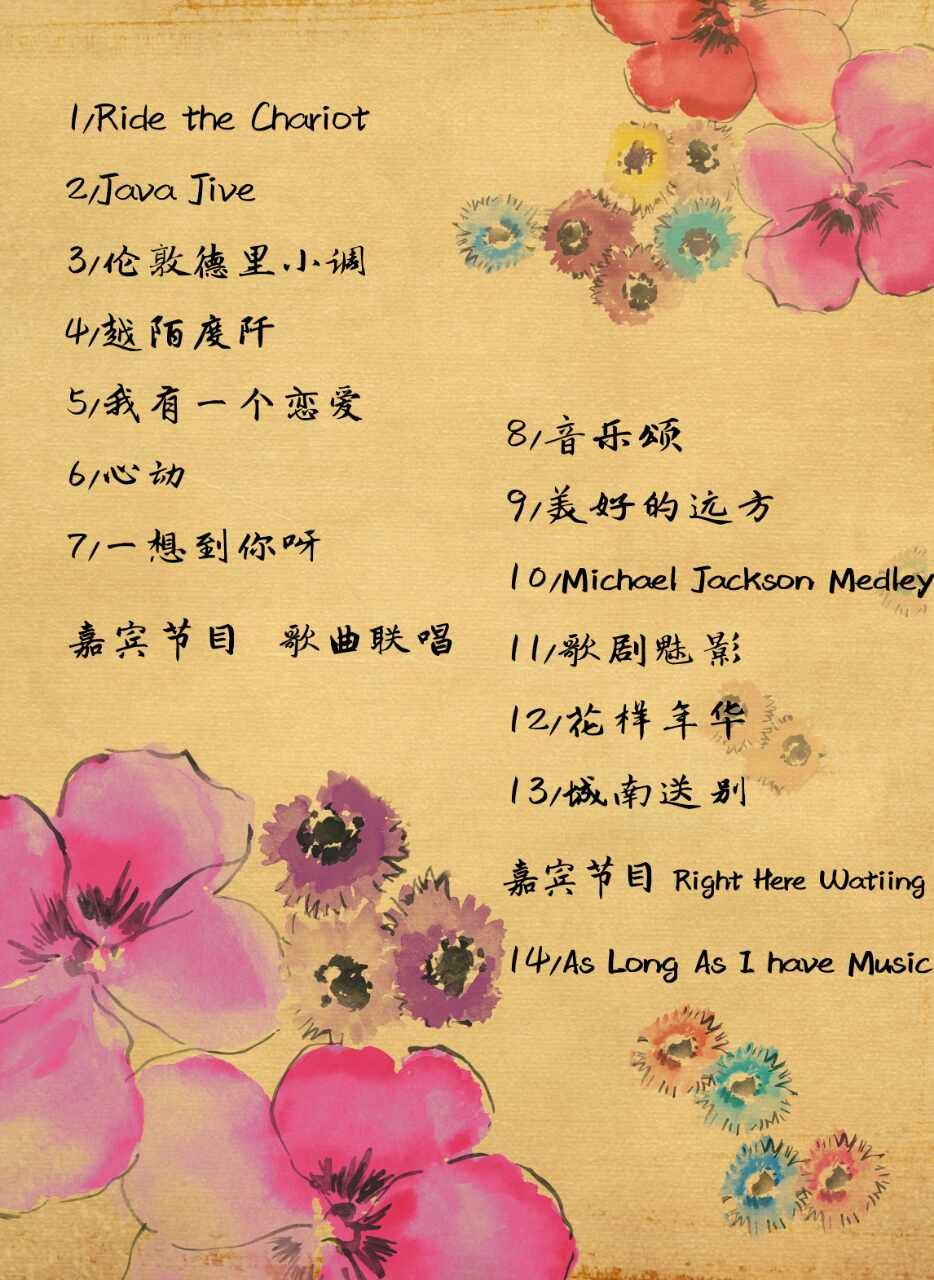 1/Ride the Chariot
2/Java Jive
3/伦敦德里小调
4/越陌度阡
5/我有一个恋爱
6/心动
7/一想到你呀
嘉宾节目 歌曲联唱
8/音乐颂
9/美好的远方
10/Michael Jackson Medley
11/歌剧魅影
12/花样年华
13/城南送别
嘉宾节目 Right Here Watiing
14/As Long As I have Music